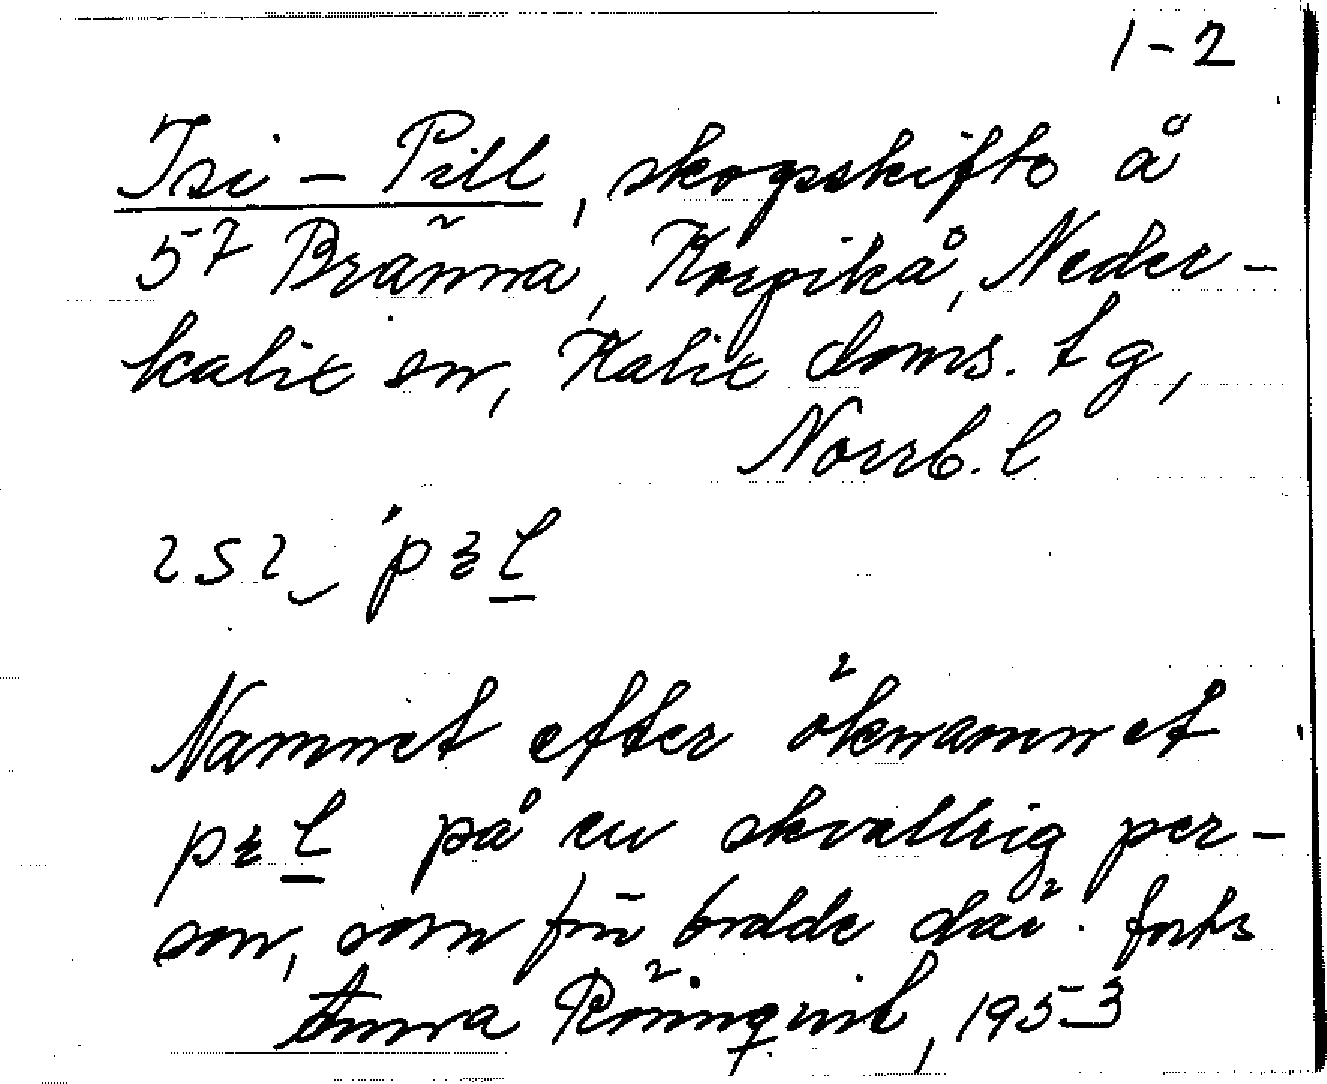 1-2
Isi-Pill, skogsskifte å
57 Bränna, Korpikå, Neder-
kalix sn, Kalix doms. tg,
Norrb. l
Namnet efter öknamnet
på en skvallrig per-
son, som förr bodde där. forts
Anna Rönnqvist, 1953